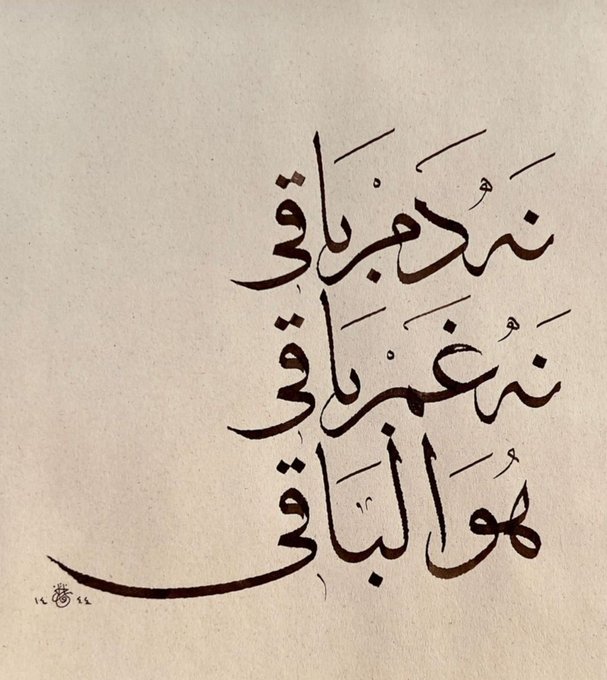 نَه دَمْ بَاقِی
نَه غَمْ بَاقِی
هُوَ الْبَاقِی
١٤٤٤